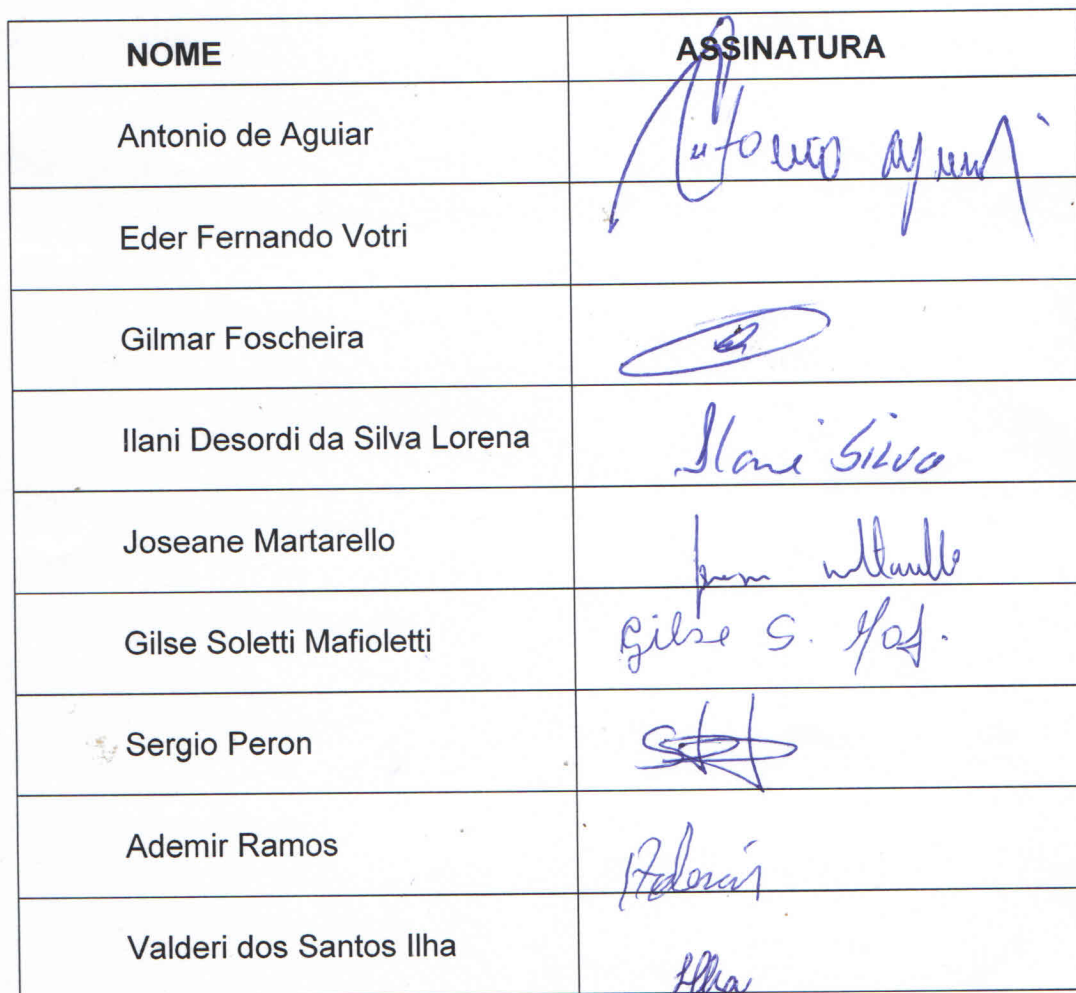 NOME ASSINATURA
Antonio de Aguiar
Eder Fernando Votri
Gilmar Foscheira
Ilani Desordi da Silva Lorena Ilani Silva
Joseane Martarello
Gilse Soletti Mafioletti Gilse S. Maf.
Sergio Peron
Ademir Ramos Ademir
Valderi dos Santos Ilha Ilha